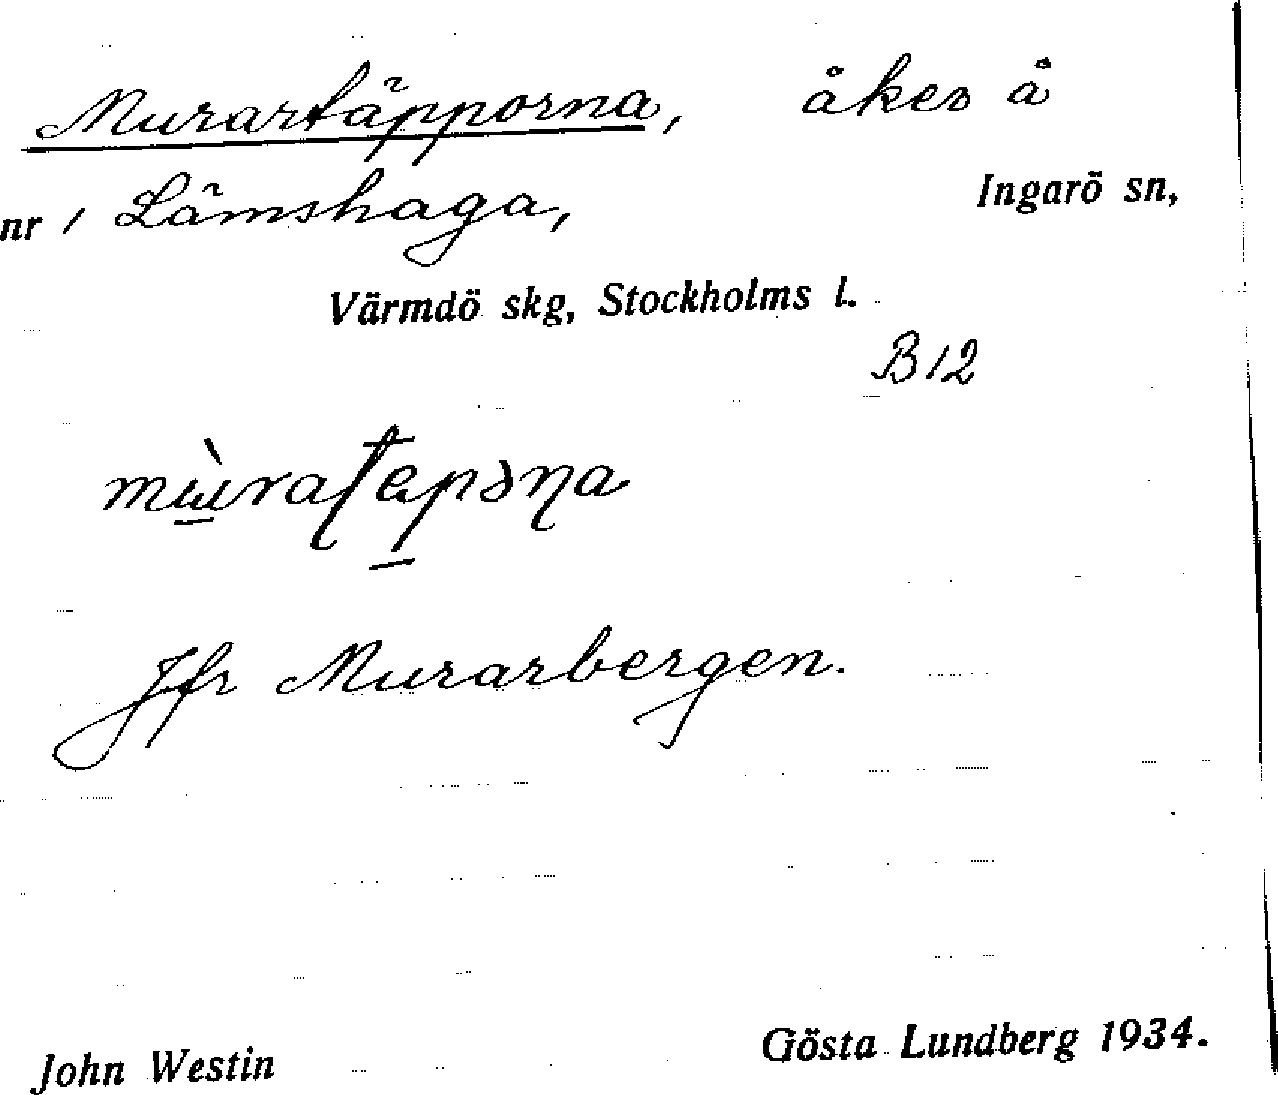 Murartäpporna, åker å
nr 1 Lämshaga, Ingarö sn,
Värmdö skg, Stockholms l.
B 12
Jfr Murarbergen.
John Westin Gösta Lundberg 1934.